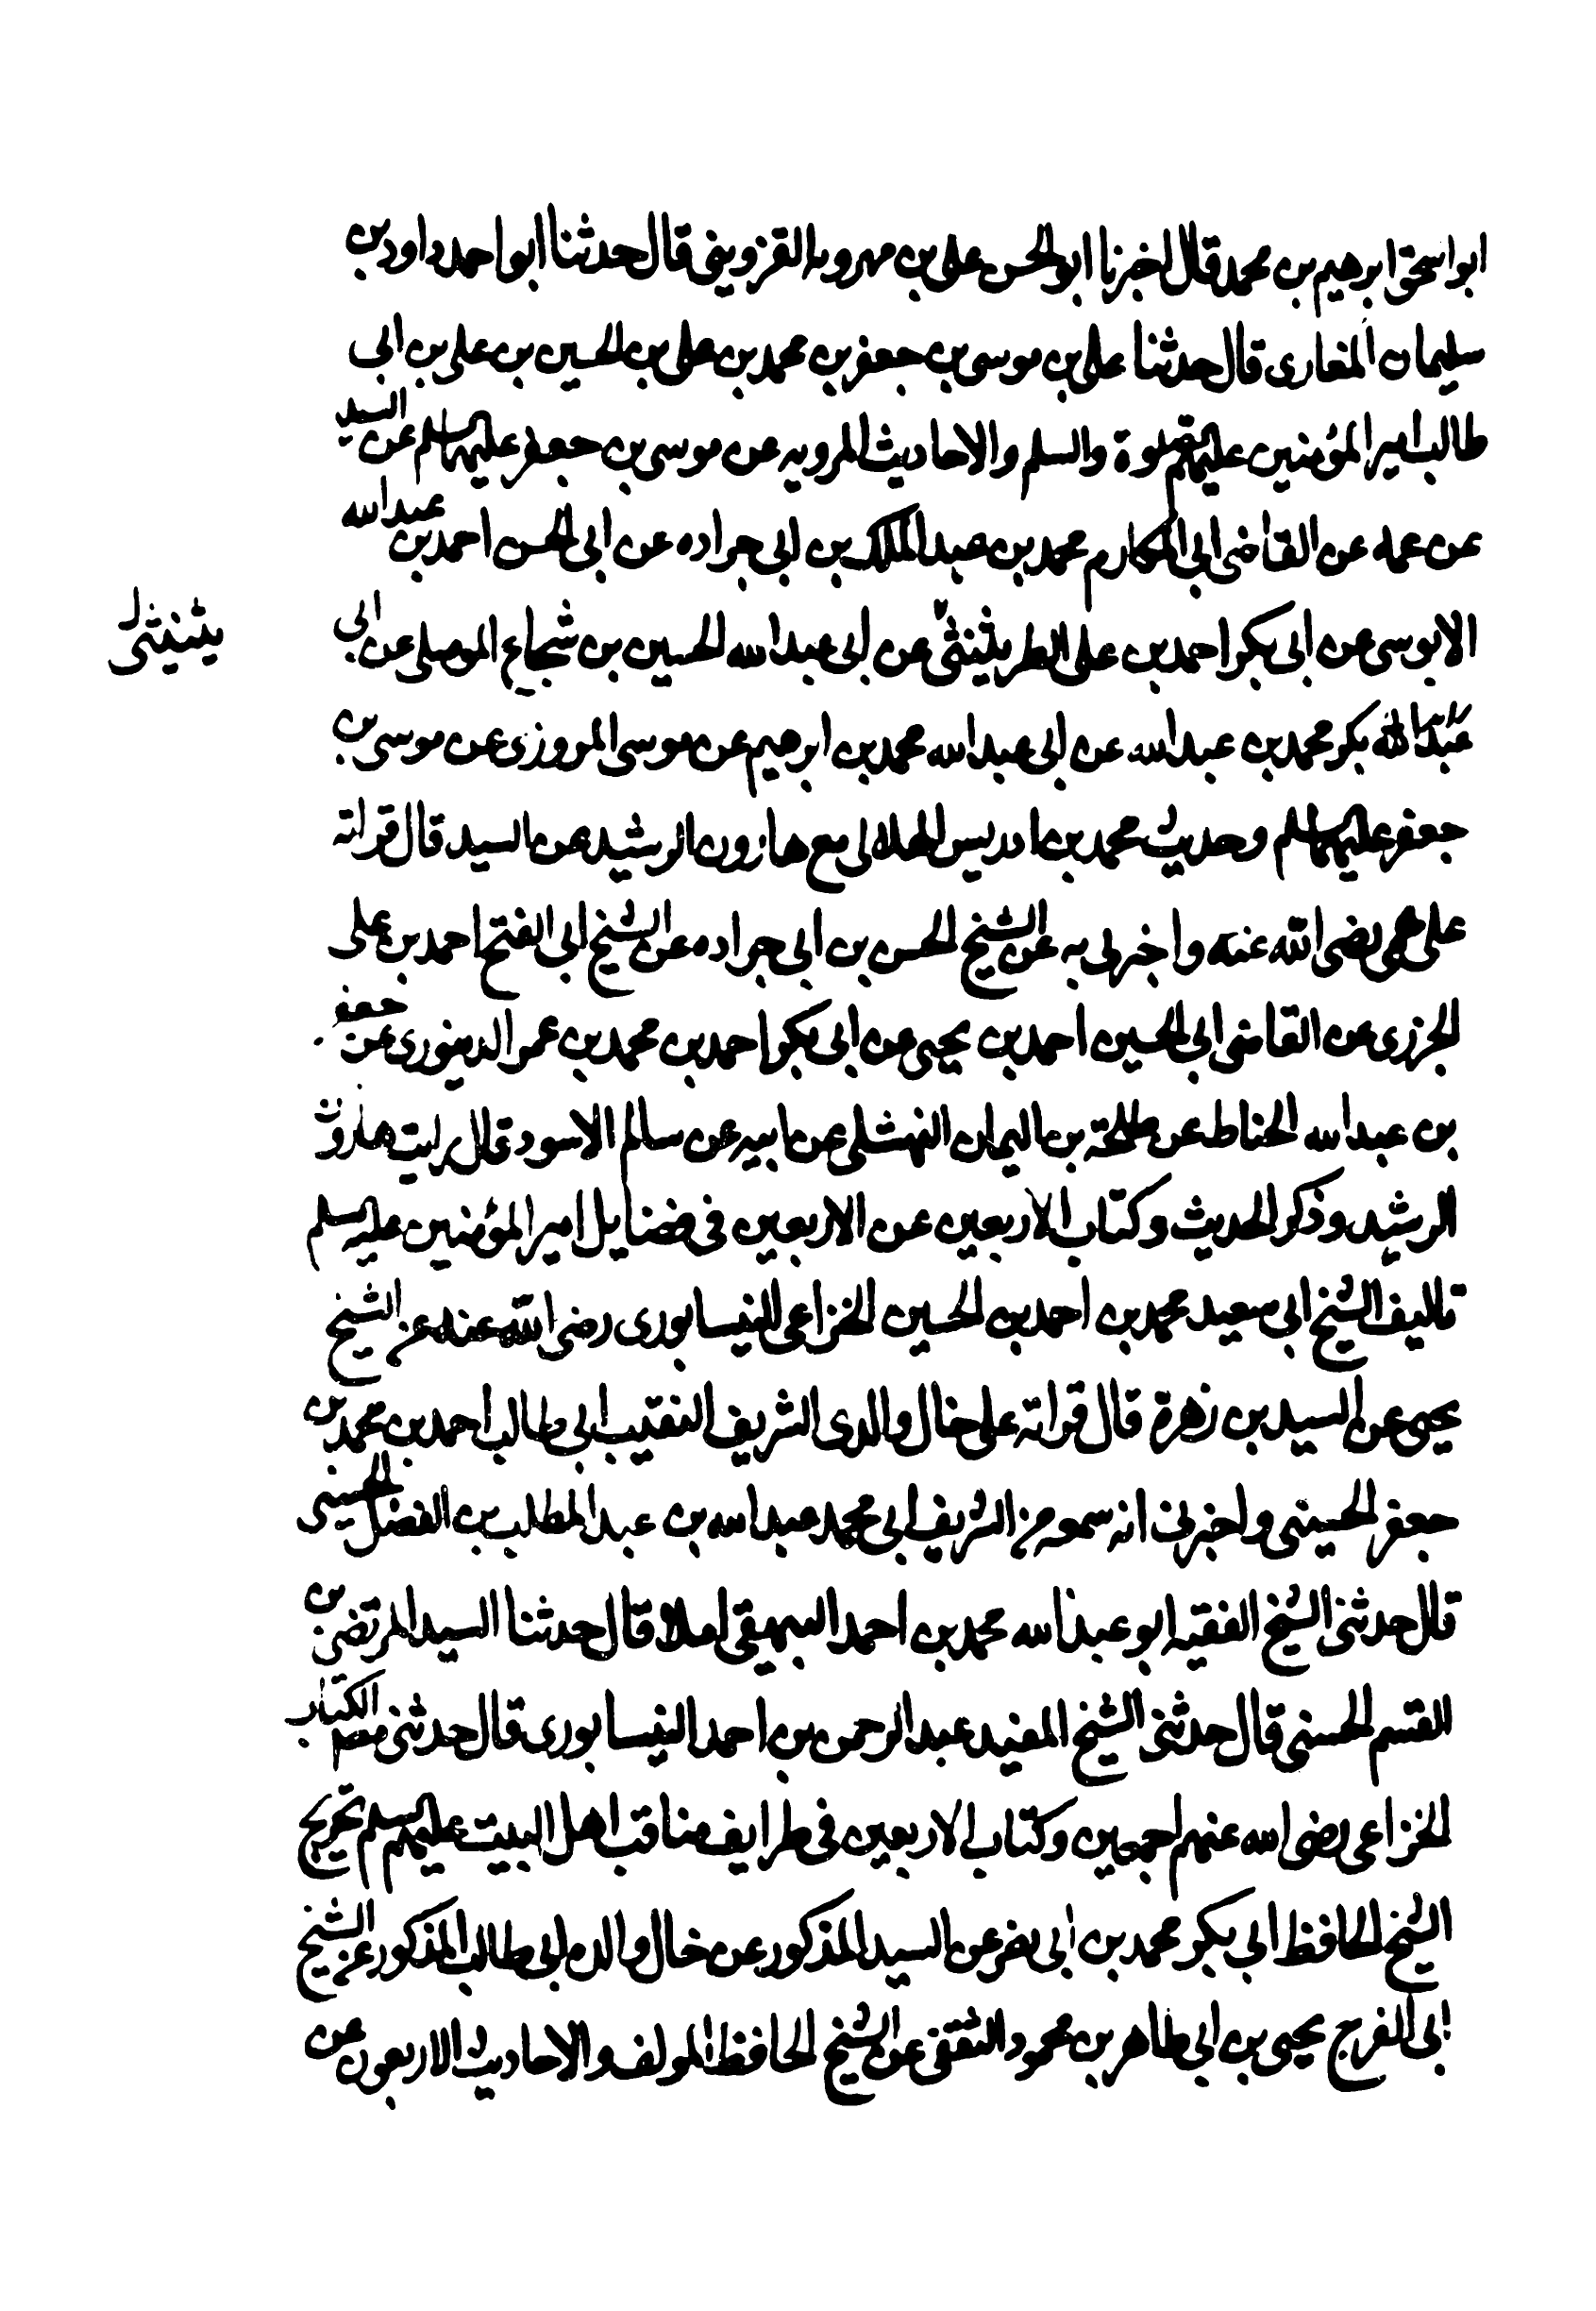 ابو اسحق ابرهيم بن محمد قال اخبرنا ابو الحسن على بن مهرويه القزوينى قال حدثنا ابو احمد داود بن
سليمان المغازى قال حدثنا على بن موسى بن جعفر بن محمد بن على بن الحسين بن على بن ابى
طالب امير المؤمنين عليهم الصلوة والسلم والاحاديث المرويه عن موسى بن جعفر عليهما السلم عن السيد
عن عمه عن القاضى ابى المكارم محمد بن عبد الملك بن ابى جراده عن ابى الحسن احمد بن عبد الله
الابوسى عن ابى بكر احمد بن على الطريثيثى عن ابى عبد الله الحسين بن شجاع الموصلى عن ابى
يثيثى
بكر محمد بن عبد الله عن ابى عبد الله محمد بن ابرهيم عن موسى المروزى عن موسى بن
جعفر عليهما السلم وحديث محمد بن ادريس الهلالى مع هارون الرشيد عن السيد قال قراته
على عمى رضى الله عنه واخبرنى به عن الشيخ الحسن بن ابى جراده عن الشيخ ابى الفتح احمد بن على
الجزرى عن القاضى ابى الحسين احمد بن يحيى عن ابى بكر احمد بن محمد بن عمر الدينورى عن جعفر
بن عبد الله الحناط عن طلحة بن اليمان النهشلى عن ابيه عن سالم الاسود قال رايت هارون
الرشيد وذكر الحديث وكتاب الاربعين عن الاربعين فى فضايل امير المؤمنين عليه السلم
تاليف الشيخ ابى سعيد محمد بن احمد بن الحسين الخزاعى النيسابورى رضى الله عنه عن الشيخ
يحيى عن السيد بن زهرة قال قراته على خال والدى الشريف النقيب ابى طالب احمد بن محمد بن
جعفر الحسينى واخبرنى انه سمعه من الشريف ابى محمد عبد الله بن عبد المطلب بن الفضل الحسينى
قال حدثنى الشيخ الفقيه ابو عبد الله محمد بن احمد البيهقى املا قال حدثنا السيد المرتضى بن
القسم الحسنى قال حدثنى الشيخ المفيد عبد الرحمن بن احمد النيسابورى قال حدثنى مصنف الكتاب
الخزاعى رضى الله عنهم اجمعين وكتاب الاربعين فى طرايف مناقب اهل البيت عليهم السلم تخريج
الشيخ الحافظ ابى بكر محمد بن ابى نصر عن السيد المذكور عن خال والده ابى طالب المذكور عن الشيخ
ابى الفرج يحيى بن ابى طاهر بن محمود الثقفى عن الشيخ الحافظ المولف والاحاديث الاربعون عن